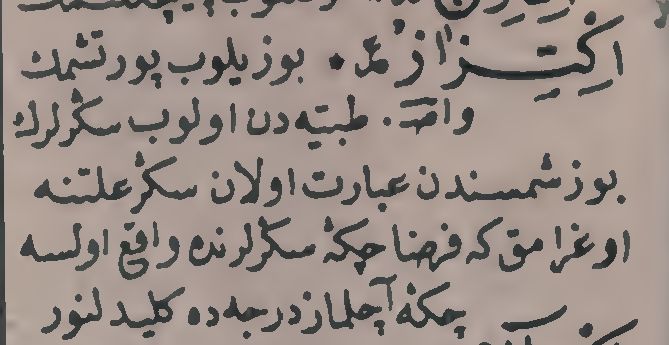 اكتزاز ع. بوزيلوب پورتشمك
وا‌صط. طبيه دن اولوب سڭرلرك
بوزشمسندن عبارت اولان سڭر علتنه
اوغرامق كه فرضا چڭه سڭرلرنده واقع اولسه
چڭه آچلماز درجه ده كليدلنور